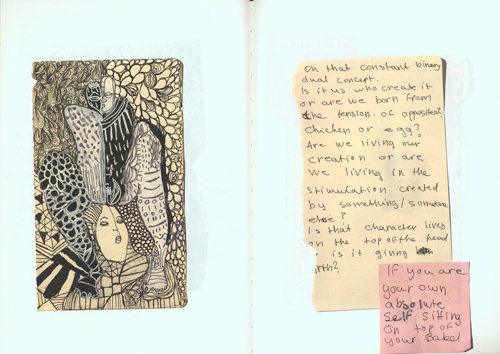 Oh that constant binary
dual concept.
Is it us who create it
or are we born from
the tension of opposites?
Chicken or egg?
Are we living our
creation or are
we living in the
stimulation created
by something/someone
else?
Is that character lives
on the top of the head
or is it giving
birth?
If you are
your own
absolute
self sitting
on top of
your Babel